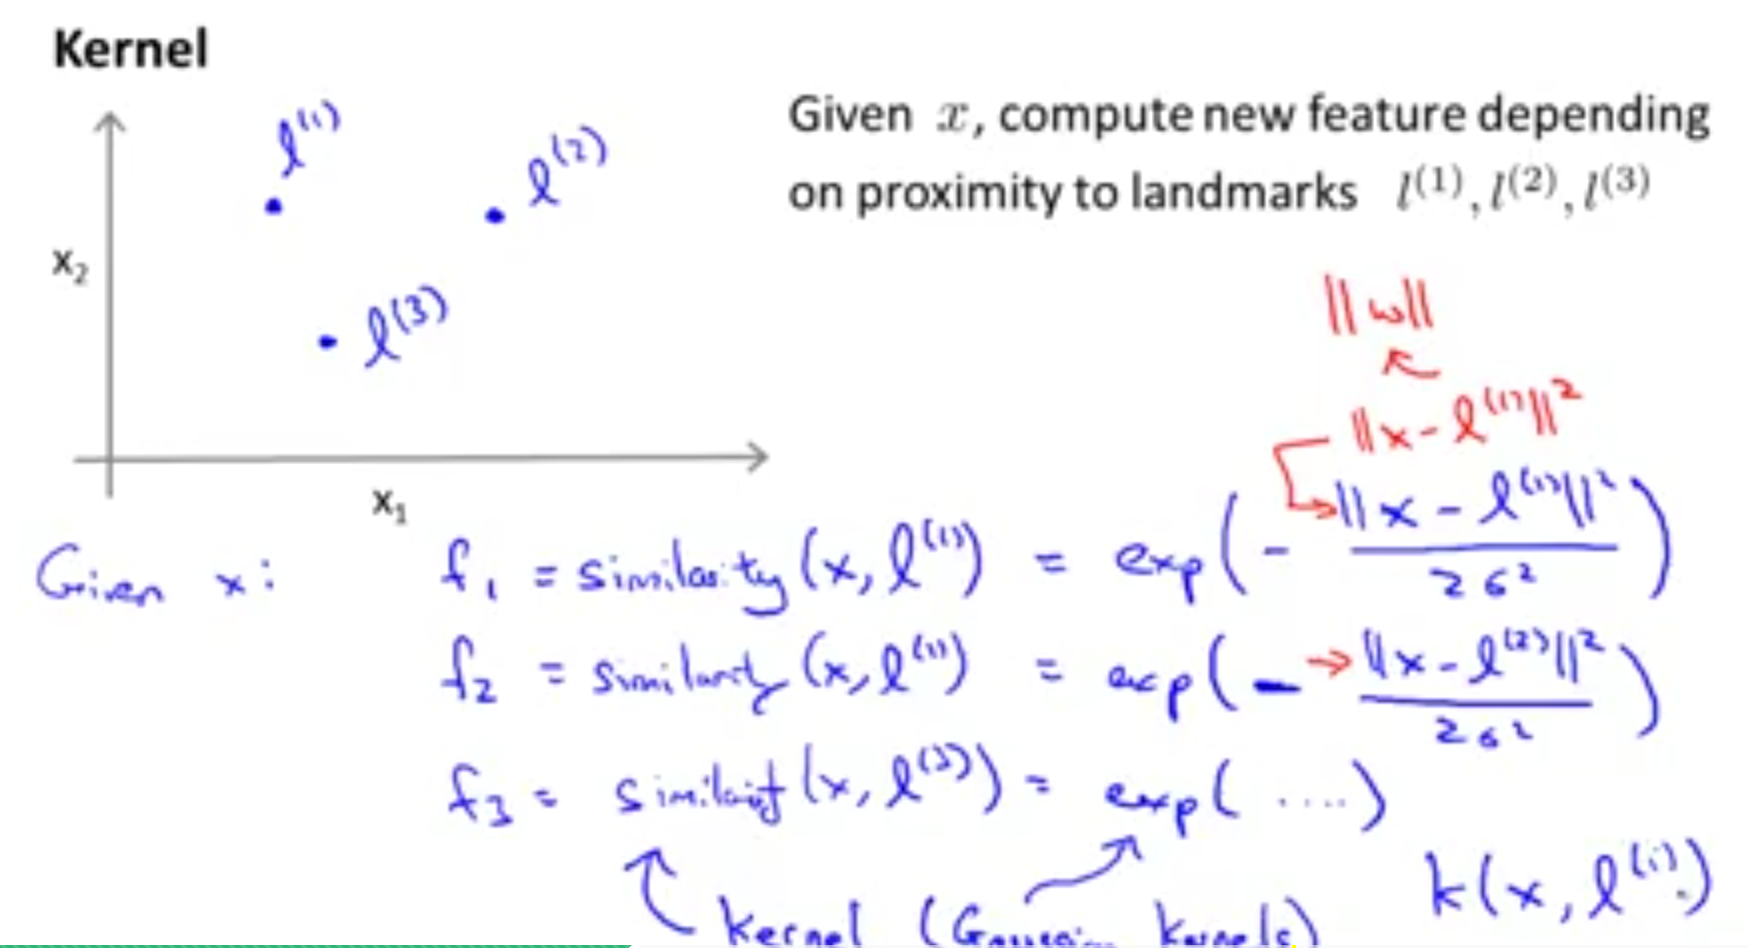 Kernel
l^(1)
l^(2)
l^(3)
x₂
x₁
Given x, compute new feature depending
on proximity to landmarks l^(1), l^(2), l^(3)
||w||
||x - l^(1)||²
Given x:
f₁ = similarity (x, l^(1)) = exp(- ||x - l^(1)||² / 2σ²)
f₂ = similarity (x, l^(1)) = exp(- ||x - l^(2)||² / 2σ²)
f₃ = similarity (x, l^(3)) = exp( .... )
kernel (Gaussian kernels)
k(x, l^(i))